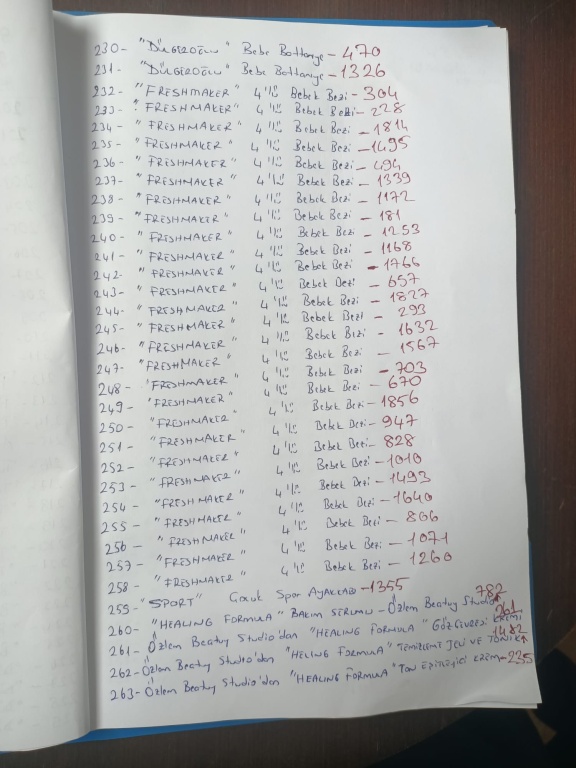 230- "DÜLGEROĞLU" Bebe Battaniye - 470
231- "DÜLGEROĞLU" Bebe Battaniye - 1326
232- "FRESHMAKER" 4'lü Bebek Bezi - 304
233- "FRESHMAKER" 4'lü Bebek Bezi - 228
234- "FRESHMAKER" 4'lü Bebek Bezi - 1814
235- "FRESHMAKER" 4'lü Bebek Bezi - 1495
236- "FRESHMAKER" 4'lü Bebek Bezi - 494
237- "FRESHMAKER" 4'lü Bebek Bezi - 1339
238- "FRESHMAKER" 4'lü Bebek Bezi - 1172
239- "FRESHMAKER" 4'lü Bebek Bezi - 181
240- "FRESHMAKER" 4'lü Bebek Bezi - 1253
241- "FRESHMAKER" 4'lü Bebek Bezi - 1168
242- "FRESHMAKER" 4'lü Bebek Bezi - 1766
243- "FRESHMAKER" 4'lü Bebek Bezi - 657
244- "FRESHMAKER" 4'lü Bebek Bezi - 1827
245- "FRESHMAKER" 4'lü Bebek Bezi - 293
246- "FRESHMAKER" 4'lü Bebek Bezi - 1632
247- "FRESHMAKER" 4'lü Bebek Bezi - 1567
248- "FRESHMAKER" 4'lü Bebek Bezi - 703
249- "FRESHMAKER" 4'lü Bebek Bezi - 670
250- "FRESHMAKER" 4'lü Bebek Bezi - 1856
251- "FRESHMAKER" 4'lü Bebek Bezi - 947
252- "FRESHMAKER" 4'lü Bebek Bezi - 828
253- "FRESHMAKER" 4'lü Bebek Bezi - 1010
254- "FRESHMAKER" 4'lü Bebek Bezi - 1493
255- "FRESHMAKER" 4'lü Bebek Bezi - 1640
256- "FRESHMAKER" 4'lü Bebek Bezi - 806
257- "FRESHMAKER" 4'lü Bebek Bezi - 1071
258- "FRESHMAKER" 4'lü Bebek Bezi - 1260
259- "SPORT" Çocuk Spor AYAKKABI - 1355
260- "HEALING FORMULA" BAKIM SERUMU - Özlem Beatuy Studio 782
261- Özlem Beatuy Studio'dan "HEALING FORMULA" GÖZ ÇEVRESİ KREMİ 261
262- Özlem Beatuy Studio'dan "HELING FORMULA" TEMİZLEME JELİ VE TONİK 1482
263- Özlem Beatuy Studio'dan "HEALING FORMULA" TON EŞİTLEYİCİ KREM - 235